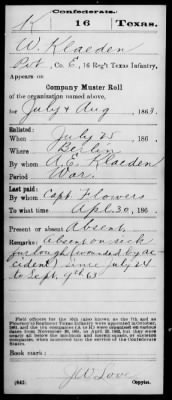 Confederate.
K 16 Texas.
W. Klaeden
Pvt, Co. E, 16 Reg't Texas Infantry.
Appears on
Company Muster Roll
of the organization named above,
for July & Aug, 1863.
Enlisted:
When July 25, 186 .
Where Berlin
By whom A. E. Klaeden
Period War.
Last paid:
By whom Capt Flowers
To what time Apl. 30, 186 .
Present or absent Absent
Remarks: Absent on sick
furlough (wounded by ac-
cident) since July 24
to Sept. 9th 63
Book mark:
J W Love
(642) Copyist.